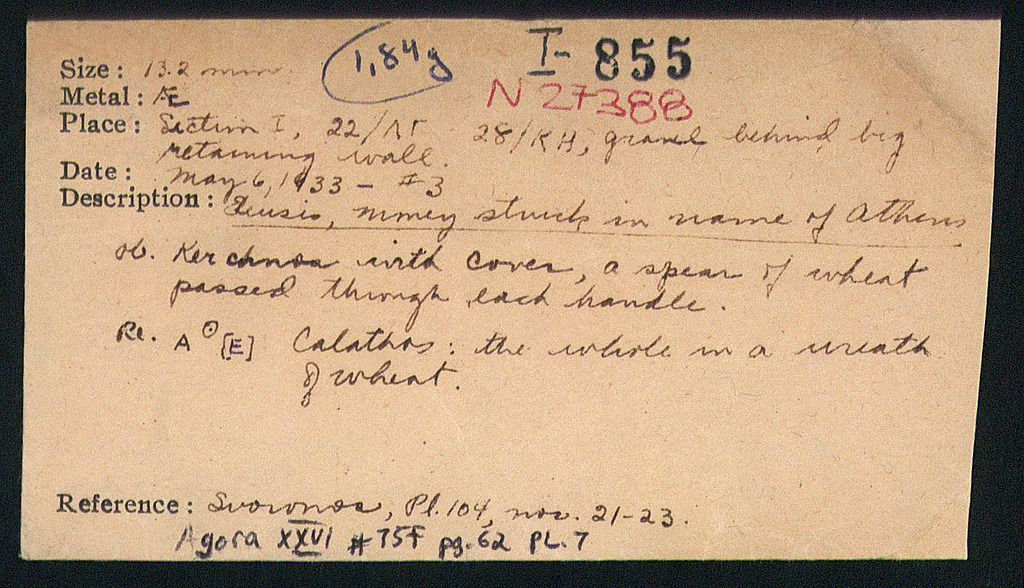 1,84g I- 855
N 27388
Size: 13.2 mm.
Metal: Æ
Place: Section I, 22/ΛΓ - 28/ΚΗ, gravel behind big
retaining wall.
Date: May 6, 1933 - #3
Description: Eleusis, money struck in name of Athens
ob. Kerchnos with cover, a spear of wheat
passed through each handle.
Re. A Θ [E] Calathos: the whole in a wreath
of wheat.
Reference: Svoronos, Pl. 104, nos. 21-23.
Agora XXVI # pg. 62 PL. 7